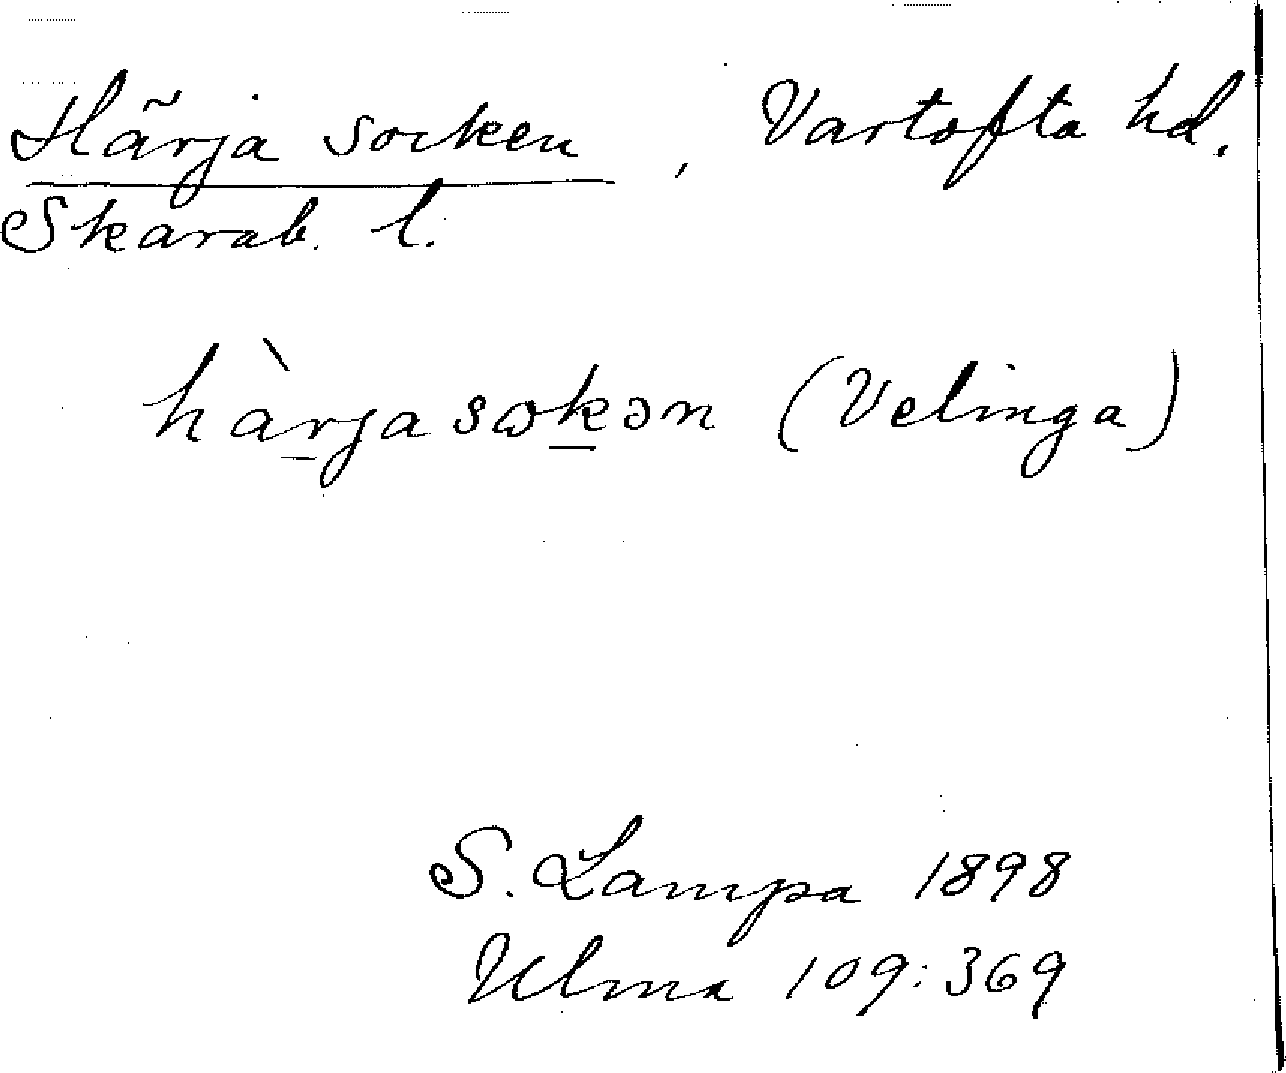 Härja socken, Vartofta hd.
Skarab. l.
hàrjasωkən (Velinga)
S. Lampa 1898
Ulma 109:369